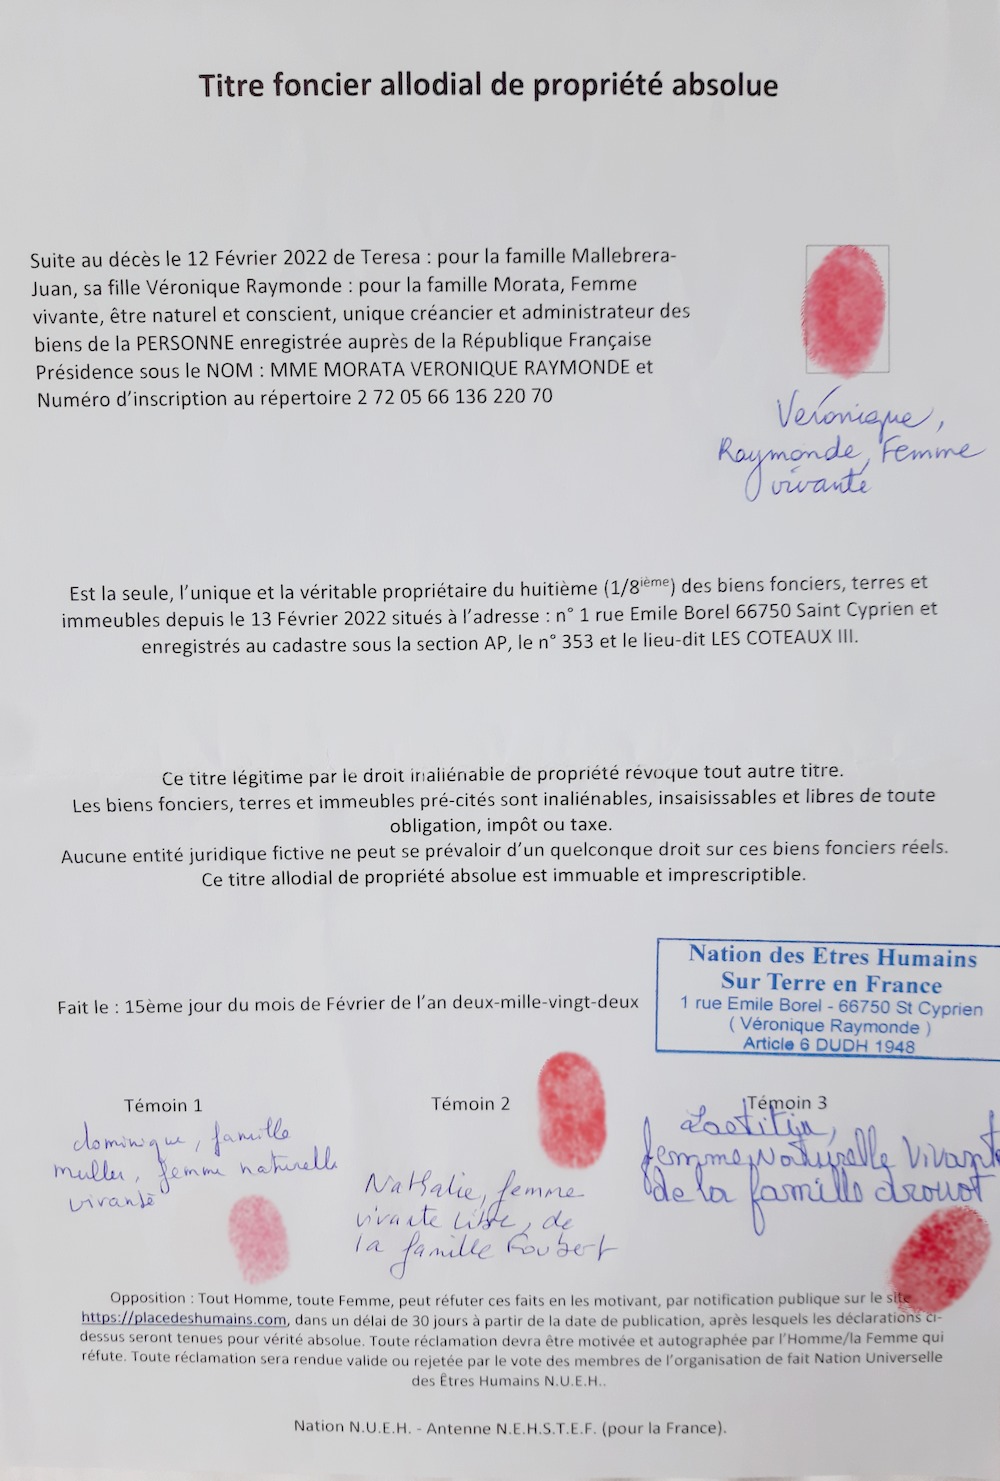 Titre foncier allodial de propriété absolue
Suite au décès le 12 Février 2022 de Teresa : pour la famille Mallebrera-
Juan, sa fille Véronique Raymonde : pour la famille Morata, Femme
vivante, être naturel et conscient, unique créancier et administrateur des
biens de la PERSONNE enregistrée auprès de la République Française
Présidence sous le NOM : MME MORATA VERONIQUE RAYMONDE et
Numéro d’inscription au répertoire 2 72 05 66 136 220 70
Véronique,
Raymonde, Femme
vivante
Est la seule, l’unique et la véritable propriétaire du huitième (1/8ième) des biens fonciers, terres et
immeubles depuis le 13 Février 2022 situés à l’adresse : n° 1 rue Emile Borel 66750 Saint Cyprien et
enregistrés au cadastre sous la section AP, le n° 353 et le lieu-dit LES COTEAUX III.
Ce titre légitime par le droit inaliénable de propriété révoque tout autre titre.
Les biens fonciers, terres et immeubles pré-cités sont inaliénables, insaisissables et libres de toute
obligation, impôt ou taxe.
Aucune entité juridique fictive ne peut se prévaloir d’un quelconque droit sur ces biens fonciers réels.
Ce titre allodial de propriété absolue est immuable et imprescriptible.
Nation des Etres Humains
Sur Terre en France
1 rue Emile Borel - 66750 St Cyprien
( Véronique Raymonde )
Article 6 DUDH 1948
Fait le : 15ème jour du mois de Février de l’an deux-mille-vingt-deux
Témoin 1
dominique, famille
muller, femme naturelle
vivante
Témoin 2
Nathalie, femme
vivante libre, de
la famille Foubert
Témoin 3
Laetitia,
femme Naturelle Vivante
de la famille drouot
Opposition : Tout Homme, toute Femme, peut réfuter ces faits en les motivant, par notification publique sur le site
https://placedeshumains.com, dans un délai de 30 jours à partir de la date de publication, après lesquels les déclarations ci-
dessus seront tenues pour vérité absolue. Toute réclamation devra être motivée et autographée par l’Homme/la Femme qui
réfute. Toute réclamation sera rendue valide ou rejetée par le vote des membres de l’organisation de fait Nation Universelle
des Êtres Humains N.U.E.H..
Nation N.U.E.H. - Antenne N.E.H.S.T.E.F. (pour la France).